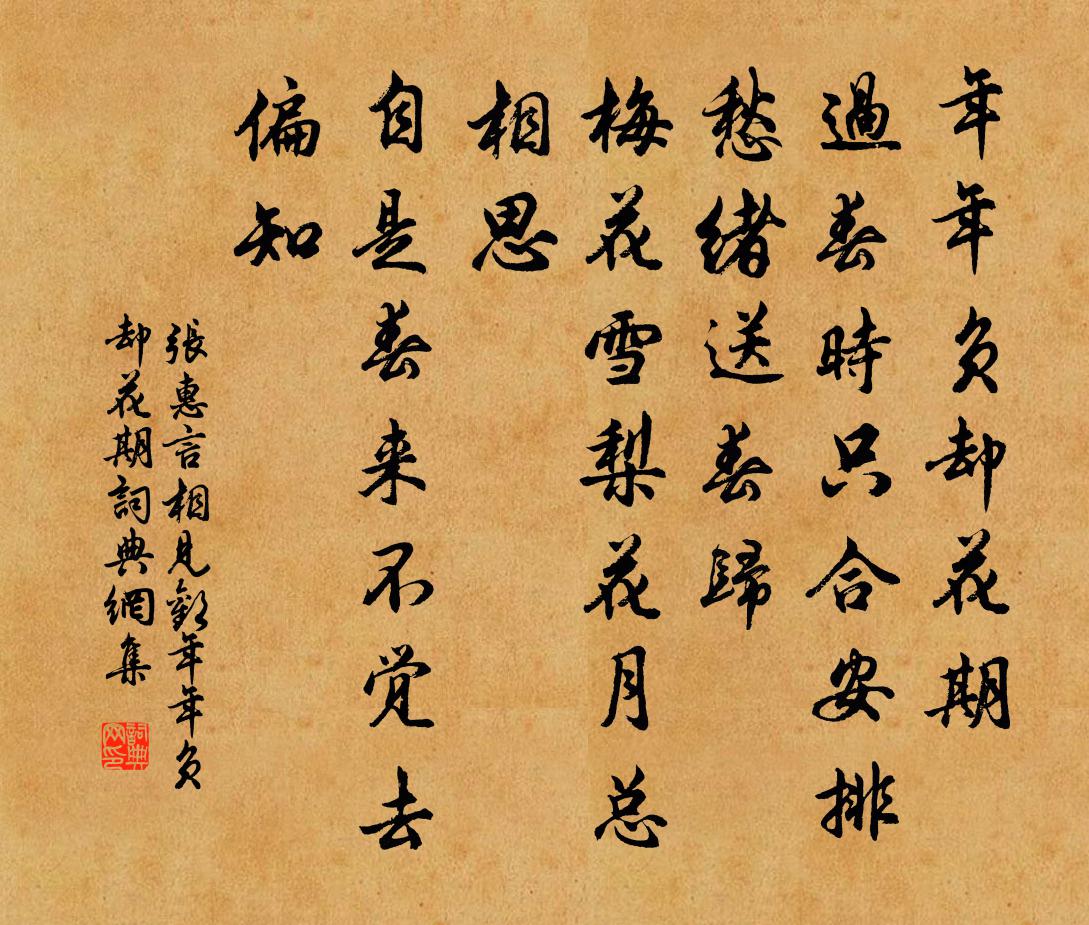 年年负却花期
過春時只合安排
愁緒送春歸
梅花雪梨花月总
相思
自是春来不觉去
偏知
張惠言相見歡年年负
却花期詞典網集
詞典网印